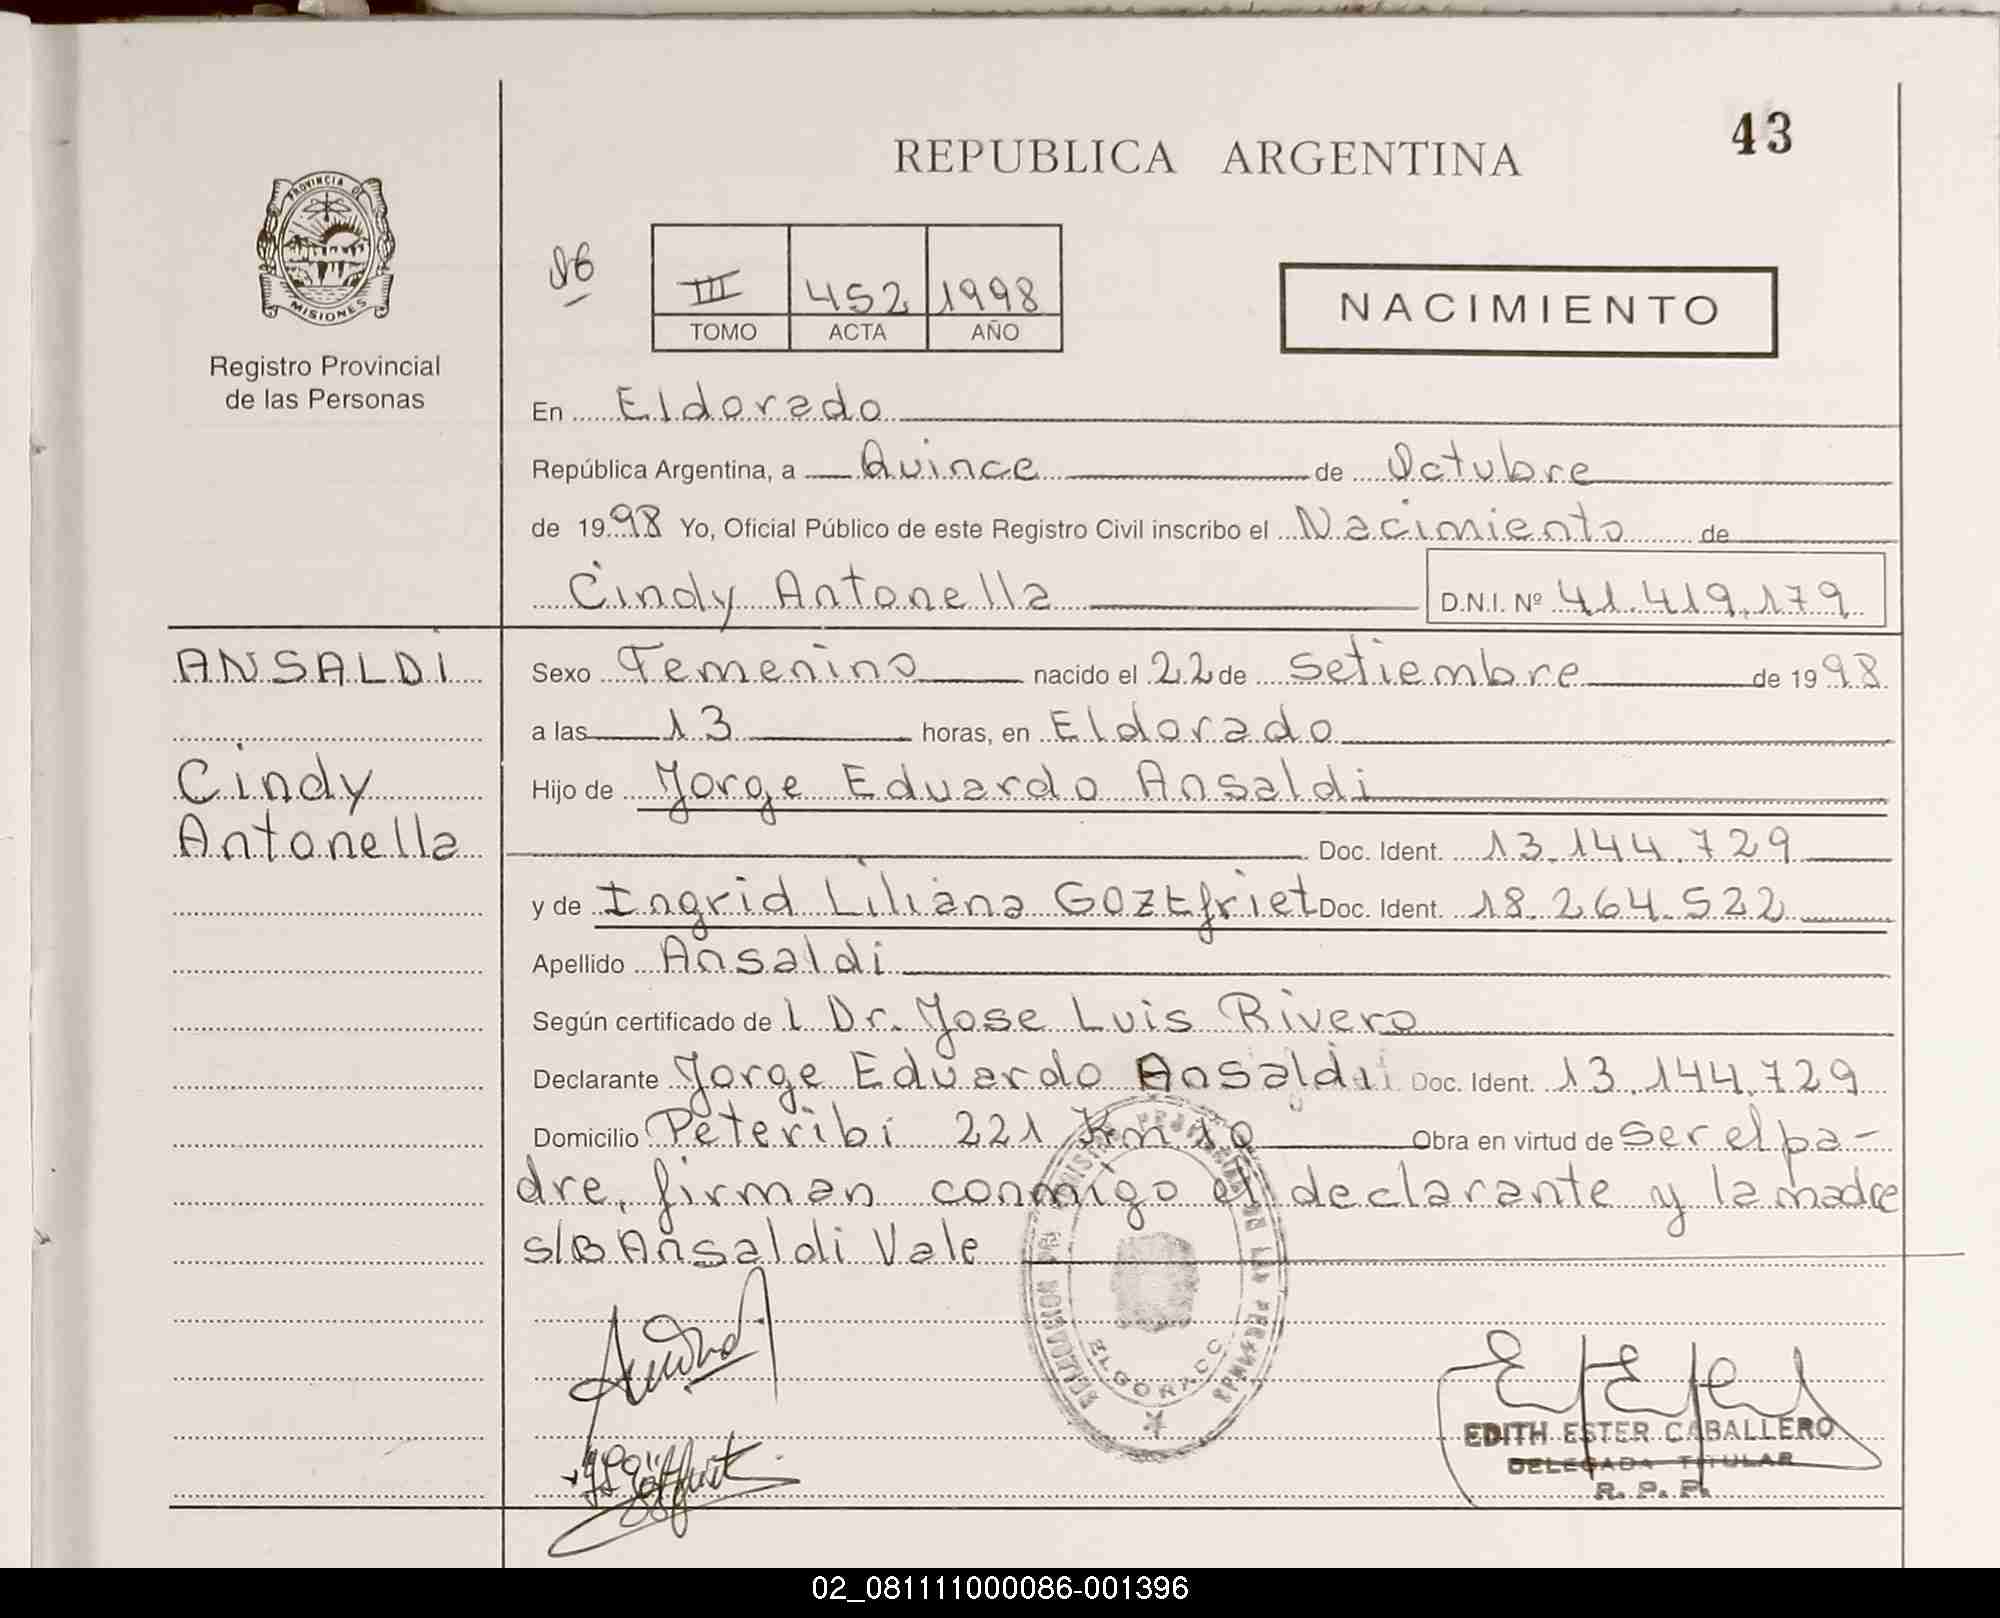 43
REPUBLICA ARGENTINA
PROVINCIA DE
MISIONES
Registro Provincial
de las Personas
III 452 1998
TOMO ACTA AÑO
NACIMIENTO
En Eldorado
República Argentina, a Quince de Octubre
de 1998 Yo, Oficial Público de este Registro Civil inscribo el Nacimiento de
Cindy Antonella D.N.I. Nº 41.419.179
ANSALDI
Cindy
Antonella
Sexo Femenino nacido el 22 de Setiembre de 1998
a las 13 horas, en Eldorado
Hijo de Jorge Eduardo Ansaldi
Doc. Ident. 13.144.729
y de Ingrid Liliana Goztfriet Doc. Ident. 18.264.522
Apellido Ansaldi
Según certificado de l Dr. Jose Luis Rivero
Declarante Jorge Eduardo Ansaldi Doc. Ident. 13.144.729
Domicilio Peteribi 221 Km 10 Obra en virtud de ser el pa-
dre, firman conmigo el declarante y la madre
s/B Ansaldi Vale
EDITH ESTER CABALLERO
DELEGADA TITULAR
R. P. P.
02_081111000086-001396